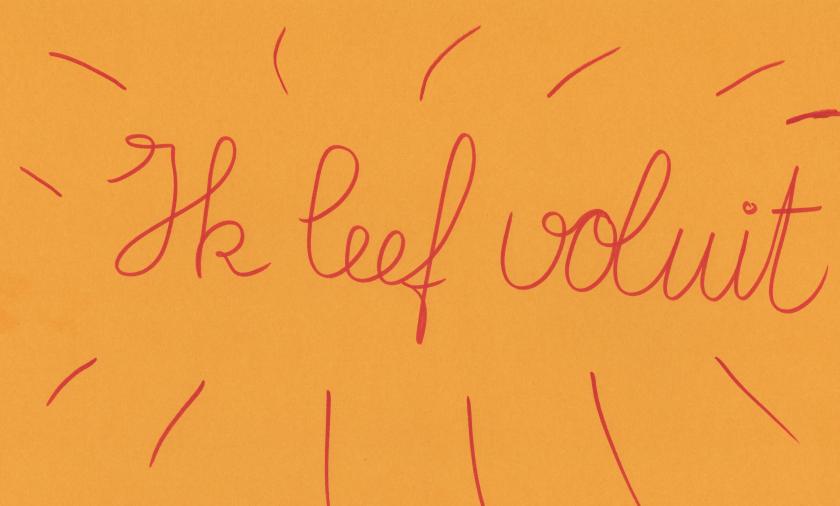 Ik leef voluit